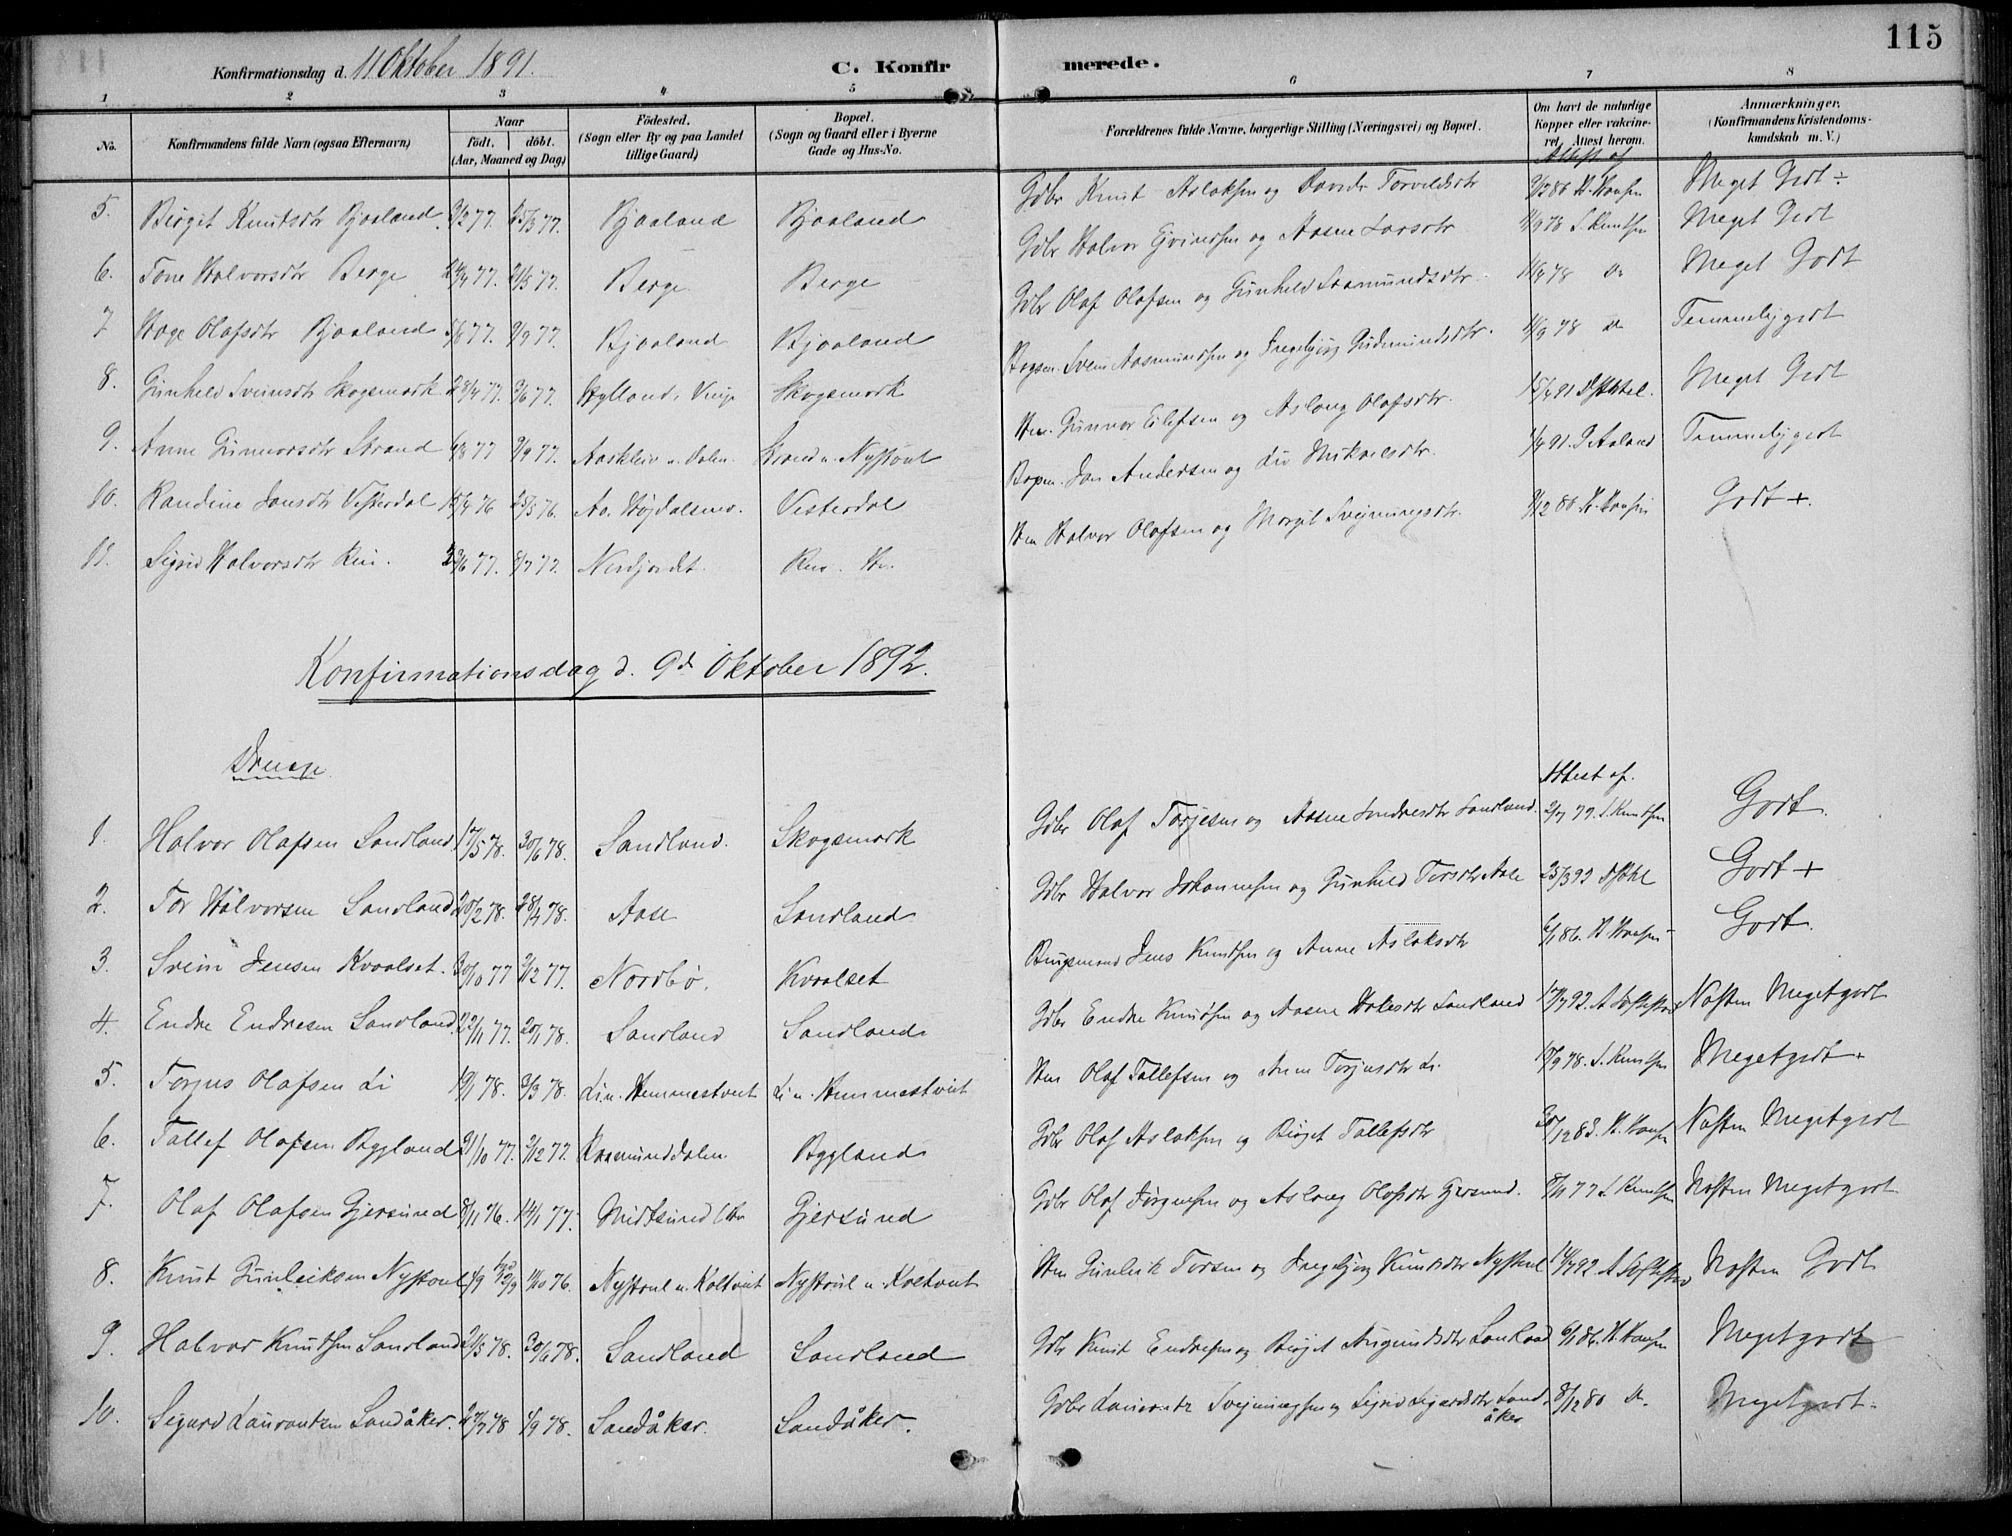 115
Konfirmationsdag d. 11 Oktober 1891. C. Konfirmerede.
1 2 3 4 5 6 7 8
No. Konfirmandens fulde Navn (ogsaa Efternavn) Naar født, døbt. (Aar, Maaned og Dag) Fødested. (Sogn eller By og paa Landet tillige Gaard) Bopæl. (Sogn og Gaard eller i Byerne Gade og Hus-No. Forældrenes fulde Navne, borgerlige Stilling (Næringsvei) og Bopæl. Om havt de naturlige Kopper eller vakcineret, Attest herom. Anmærkninger, (Konfirmandens Kristendomskundskab m. V.)
Attest af
5. Birget Knutsdtr Bjaaland 9/2 77. 25/3 77. Bjaaland Bjaaland Gdbr Knut Aslaksen og Torvildsdtr H. Hansen Meget Godt ÷
6. Tone Halvorsdtr Berge 24/4 77. 21/5 77. Berge Berge Gdbr Halvor Ejvindsen og Aasne Larsdtr 11/9 78 S. Knudsen Meget Godt
7 Hæge Olafsdtr Bjaaland 5/8 77. 9/9 77. Bjaaland Bjaaland Gdbr Olaf Olafsen og Gunhild Aasmundsdtr. 78 Do Meget Godt
8. Gunhild Sveinsdtr Skogsmark 28/4 77. 3/6 77. Hylland, Vinje Skogsmark Svein Aasmundsen og Ingebjørg Gudmundsdtr. 11/9 78 Do Temmeliggodt
9. Anne Gunnarsdtr Strand 4/8 77 9/9 77. Aasklev u. Dalen Strand u. Nystaul Hm. Gunnar Eilefsen og Aslaug Olafsdtr. 15/4 91 Meget Godt
10. Randine Jansdtr Vesterdal 15/4 76 25/5 76. Aa. Højdalsmo. Vesterdal Jan Andersen og Liv Mikaelsdtr. 91. Aaland Temmeliggodt
11. Sigrid Halvorsdtr Rui. 23/6 77. 8/7 77. Nordjordet. Rui. Hm. Hm Halvor Olafsen og Margit Svejnungsdtr. 9/12 80 H. Hansen Godt +.
Konfirmationsdag d. 9d Oktober 1892.
Drenge
Attest af.
1. Halvor Olafsen Sandland 17/5 78. 30/6 78. Sandland. Skogsmark Gdbr Olaf Torjesen og Aasne Sondresdtr Sandland. 2/7 79. S. Knudsen Godt.
2. Tor Halvorsen Sandland 20/2 78. 28/4 78. Aase Sandland Gdbr Halvor Johannesen og Gunhild Torsdtr Aase 25/3 92 Godt +
3. Svein Jensen Kvaalset. 30/10 77 2/12 77. Nordbø. Kvaalset Brugsmand Jens Knudsen og Anne Aslaksdtr 6/1 86. H Hansen Godt.
4. Endre Endresen Sandland 22/11 77. 20/1 78. Sandland Sandland Gdbr Endre Knudsen og Aasne Sandland 92. A Næsten Megetgodt
5. Torjus Olafsen Li 19/1 78. 3/3 78. Li u. Hemmestveit Li u. Hemmestveit Hm Olaf Tallefsen og Anne Torjusdtr Li. 78. S. Knudsen Megetgodt +
6. Tallef Olafsen Bygland 21/10 77. 2/12 77. Raamunddalen Bygland Gdbr Olaf Aslaksen og Birget Tallefsdtr 30/12 83. H. Hansen Næsten Megetgodt
7. Olaf Olafsen Gjersund 8/11 76. 14/1 77. Midtsund Gjersund Gdbr Olaf Jørgensen og Aslaug Olafsdtr Gjersund. 8/11 77 S. Knudsen Næsten Megetgodt
8. Knut Gunleiksen Nystoul 11/10 76. Nystoul u. Koltveit Nystoul u. Koltveit Hm Gunleik Torsen og Ingebjørg Knutsdtr Nystoul 92 A Næsten Godt
9. Halvor Knudsen Sandland 21/5 78. 30/6 78. Sandland Sandland Gdbr Knut Endresen og Birget Aasmundsdtr Sandland 6/1 86. H. Hansen Megetgodt
10. Sigurd Laurantsen Sandåker. 27/7 78 1/9 78. Sandåker. Sandåker. Gdbr Laurants Svejnungsen og Sigrid Sigurdsdtr Sandåker 8/12 80 Do. Megetgodt.